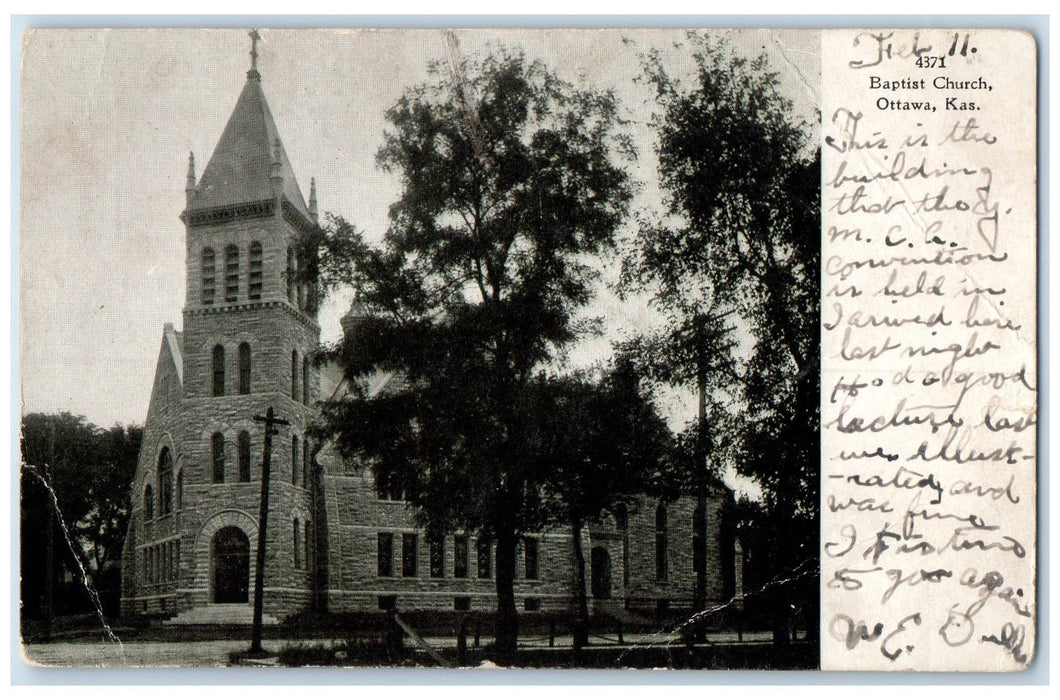 Feb 11.
4371
Baptist Church,
Ottawa, Kas.
This is the
building
that the Y.
M. C. A.
convention
is held in
I arived here
last night
Had a good
lecture last
was illust-
-rated, and
was fine
I
to go again
M. E.